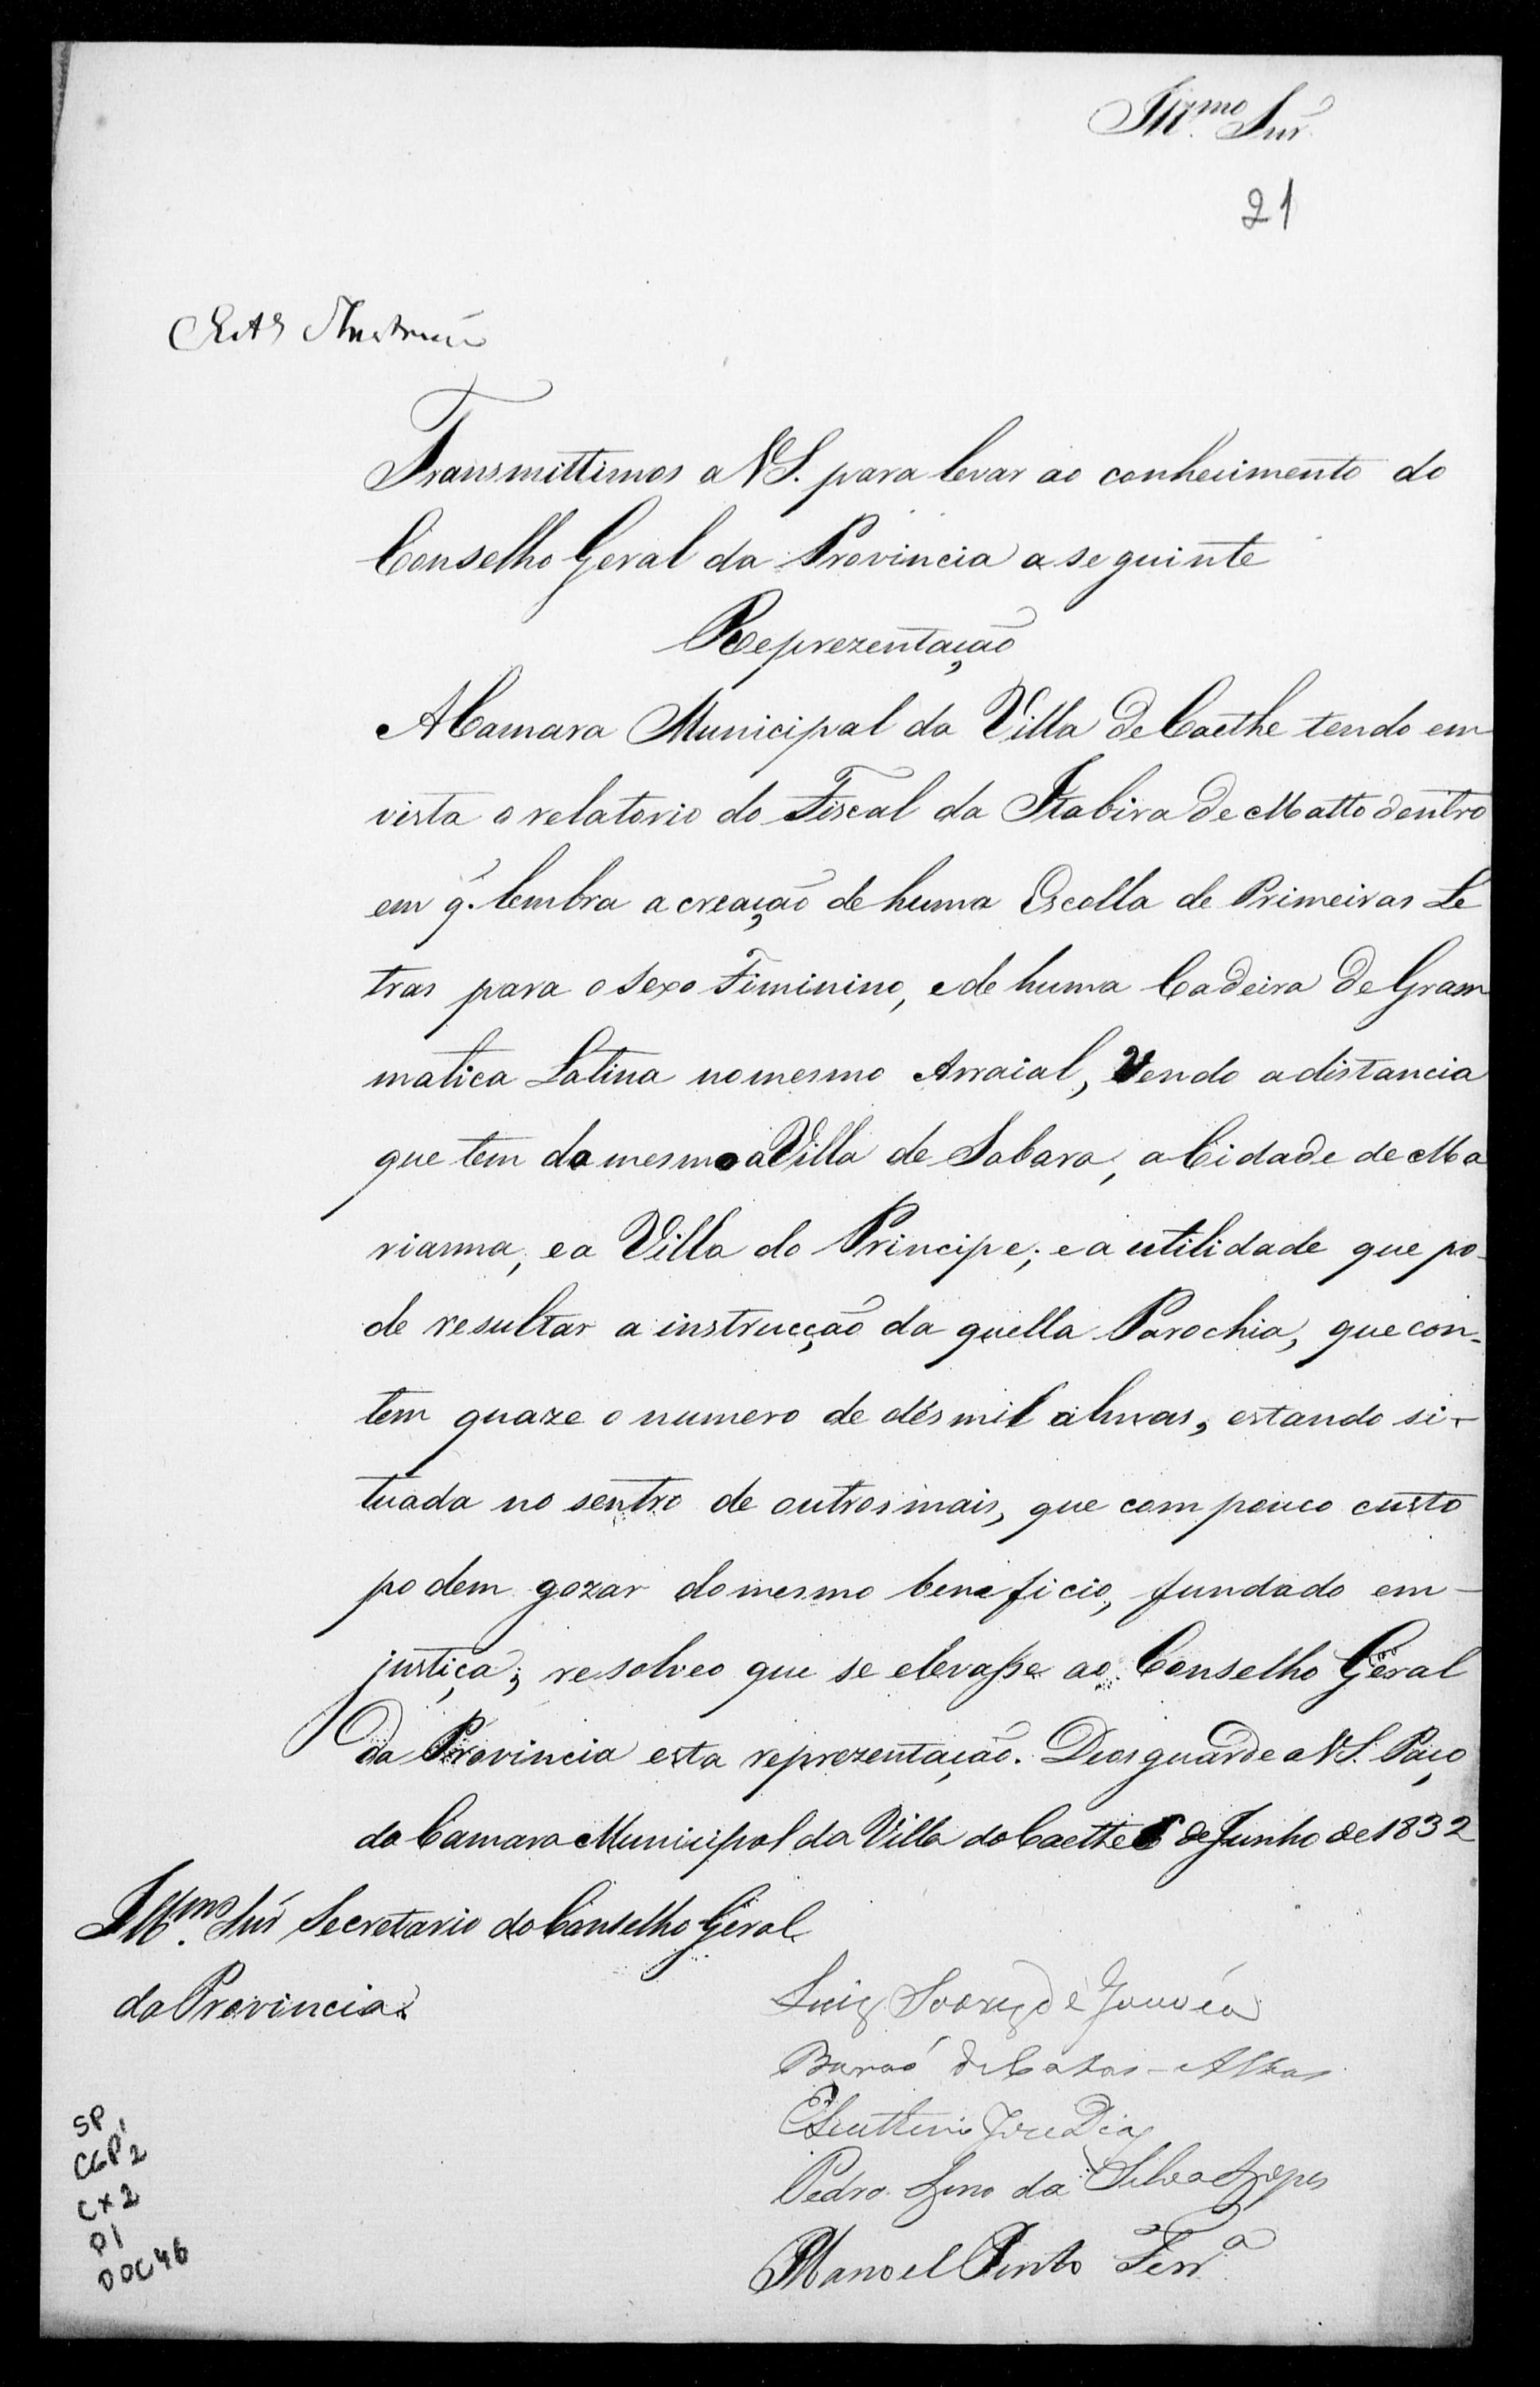 Illmo. Snr
21
Transmittimos a VS. para levar ao conhecimento do
Conselho Geral da Provincia a seguinte
Reprezentação
A Camara Municipal da Villa de Caethe tendo em
vista o relatorio do Fiscal da Itabira de Matto dentro
em q. lembra a creação de huma Escolla de Primeiras Le
tras para o sexo Fiminino, e de huma Cadeira de Gram
matica Latina no mesmo Arraial, Vendo a distancia
que tem do mesmo a Villa de Sabara, a Cidade de Ma
rianna, e a Villa do Principe; e a utilidade que po-
de resultar a instrucção da quella Parochia, que con-
tem quaze o numero de dés mil almas, estando si-
tuada no sentro de outros mais, que com pouco custo
podem gozar do mesmo beneficio, fundado em
justiça; resolveo que se elevasse ao Conselho Geral
da Provincia esta reprezentação. Deos guarde a VS. Paço
da Camara Municipal da Villa do Caethe 6 de Junho de 1832
Illmo. Snr Secretario do Conselho Geral
da Provincia.
Luiz Soares de Gouvêa
Baraõ de Catas-Altas
Eleutterio Joze Dias
Pedro Lino da Silva Lopes
Manoel Pinto Ferra
SP
CGP1 2
CX2
P1
DOC46